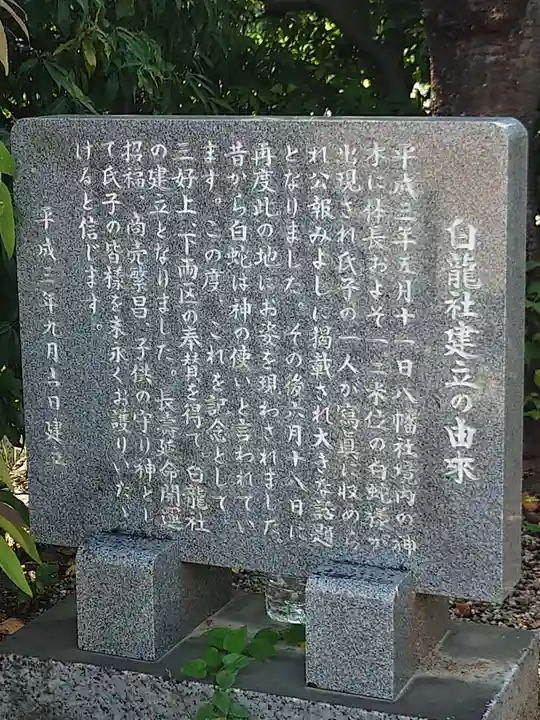 白龍社建立の由來
平成三年五月十一日八幡社境内の神
木に体長およそ一二米位の白蛇様が
出現され氏子の一人が寫真に收めら
れ公報みよしに掲載され大きな話題
となりました。その後六月十八日に
再度此の地にお姿を現わされました。
昔から白蛇は神の使いと言われてい
ます。この度、これを記念として
三好上一下両区の奉賛を得て白龍社
の建立となりました。長壽延命開運
招福、商売繁昌、子供の守り神とし
て氏子の皆様を末永くお護りいたゞ
けると信じます。
平成三年九月 日建立